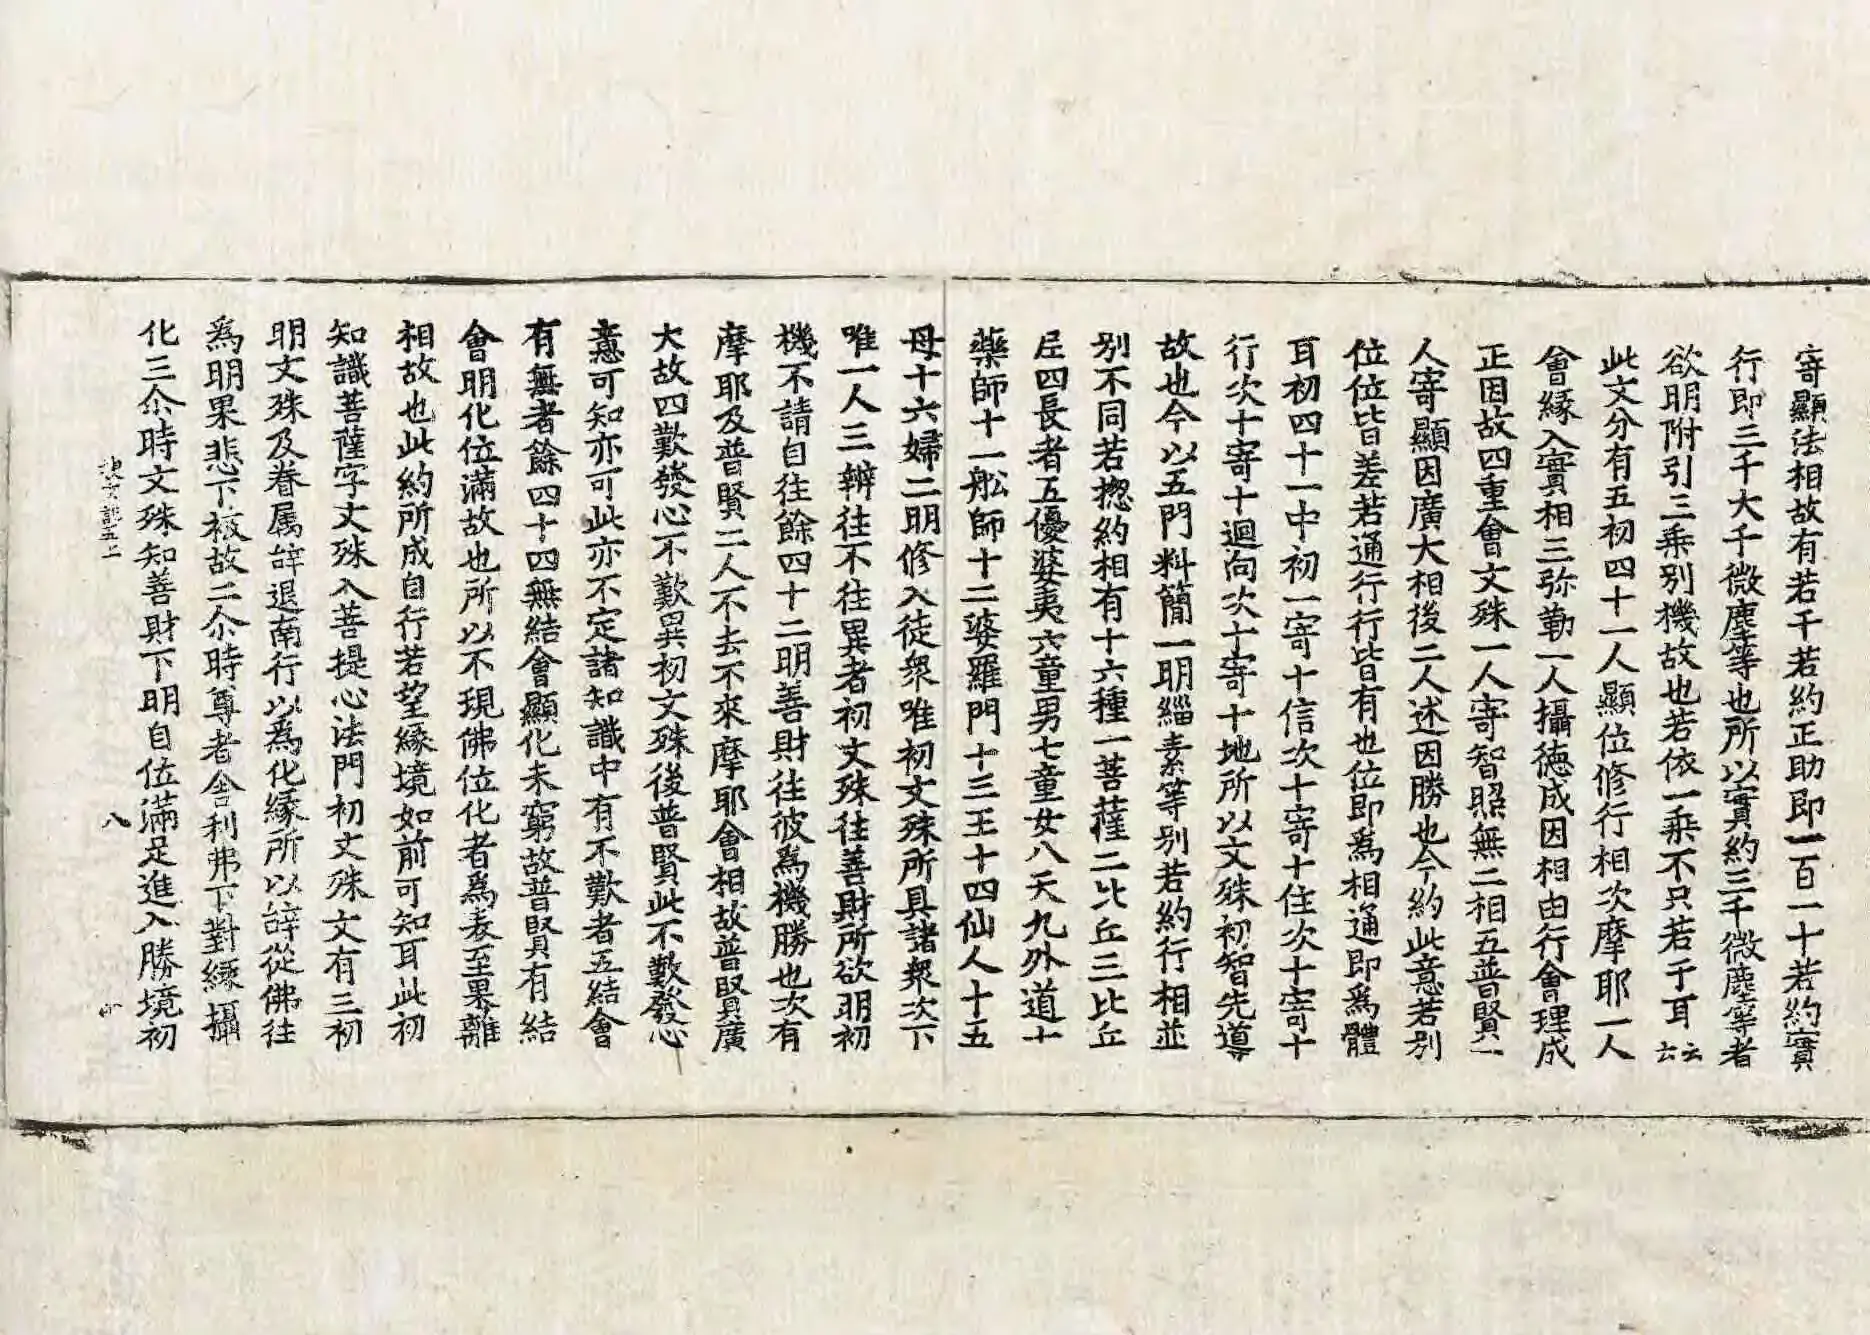 寄顯法相故有若干若約正助即一百一十若約實
行即三千大千微塵等也所以實約三千微塵等者
欲明附引三乘別機故也若依一乘不只若于耳云云
此文分有五初四十一人顯位修行相次摩耶一人
會緣入實相三弥勒一人攝德成因相由行會理成
正因故四重會文殊一人寄智照無二相五普賢一
人寄顯因廣大相後二人述因勝也今約此意若別
位位皆差若通行行皆有也位即為相通即為體
耳初四十一中初一寄十信次十寄十住次十寄十
行次十寄十迴向次十寄十地所以文殊初智先導
故也今以五門料簡一明緇素等別若約行相並
別不同若惣約相有十六種一菩薩二比丘三比丘
尼四長者五優婆夷六童男七童女八天九外道十
藥師十一舩師十二婆羅門十三王十四仙人十五
母十六婦二明修入徒衆唯初文殊所具諸衆次下
唯一人三辨往不往異者初文殊往善財所欲明初
機不請自往餘四十二明善財往彼為機勝也次有
摩耶及普賢二人不去不來摩耶會相故普賢廣
大故四歎發心不歎異初文殊後普賢此不歎發心
意可知亦可此亦不定諸知識中有不歎者五結會
有無者餘四十四無結會顯化未窮故普賢有結
會明化位滿故也所以不現佛位化者為表至果離
相故也此約所成自行若望緣境如前可知耳此初
知識菩薩字文殊入菩提心法門初文殊文有三初
明文殊及眷属辞退南行以為化緣所以辞從佛往
為明果悲下板故二尒時尊者舎利弗下對緣攝
化三尒時文殊知善財下明自位滿足進入勝境初
八